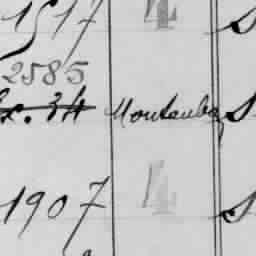 1517 4 S
2585
Ex. 34 Montauba S
1907 4 S